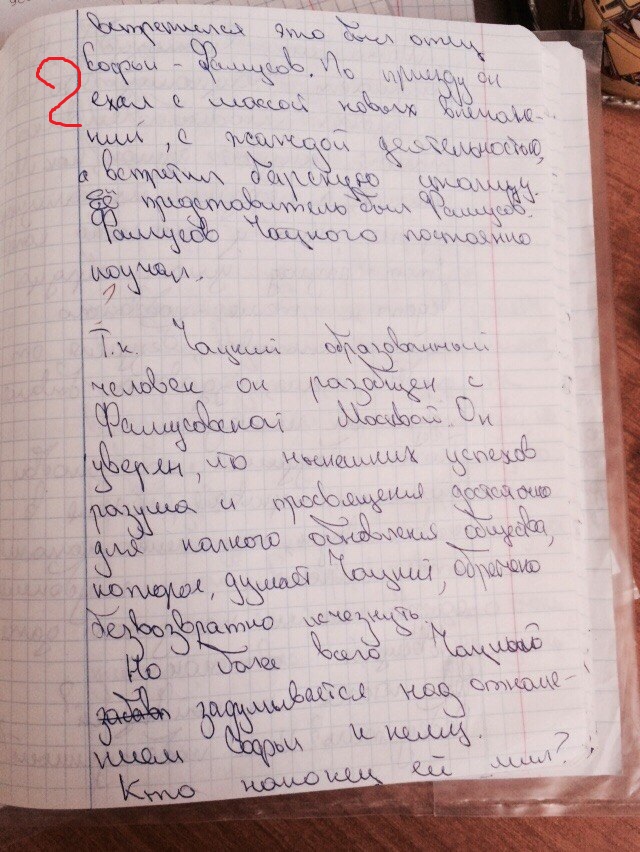 встретился это был отец
Софьи - Фамусов. По приезду он
2
ехал с массой новых впечатле-
ний, с жаждой деятельностью,
а встретил барскую
её представитель был Фамусов.
Фамусов Чацкого постоянно
поучал.
Т.к. Чацкий образованный
человек он разобщен с
Фамусовской Москвой. Он
уверен, что нынешних успехов
разума и просвящения достаточно
для полного обновления общества,
которое, думает Чацкий, обречено
безвозвратно исчезнуть.
Но более всего Чацкий
задумывается над отноше-
нием Софьи к нему.
Кто наконец ей мил?